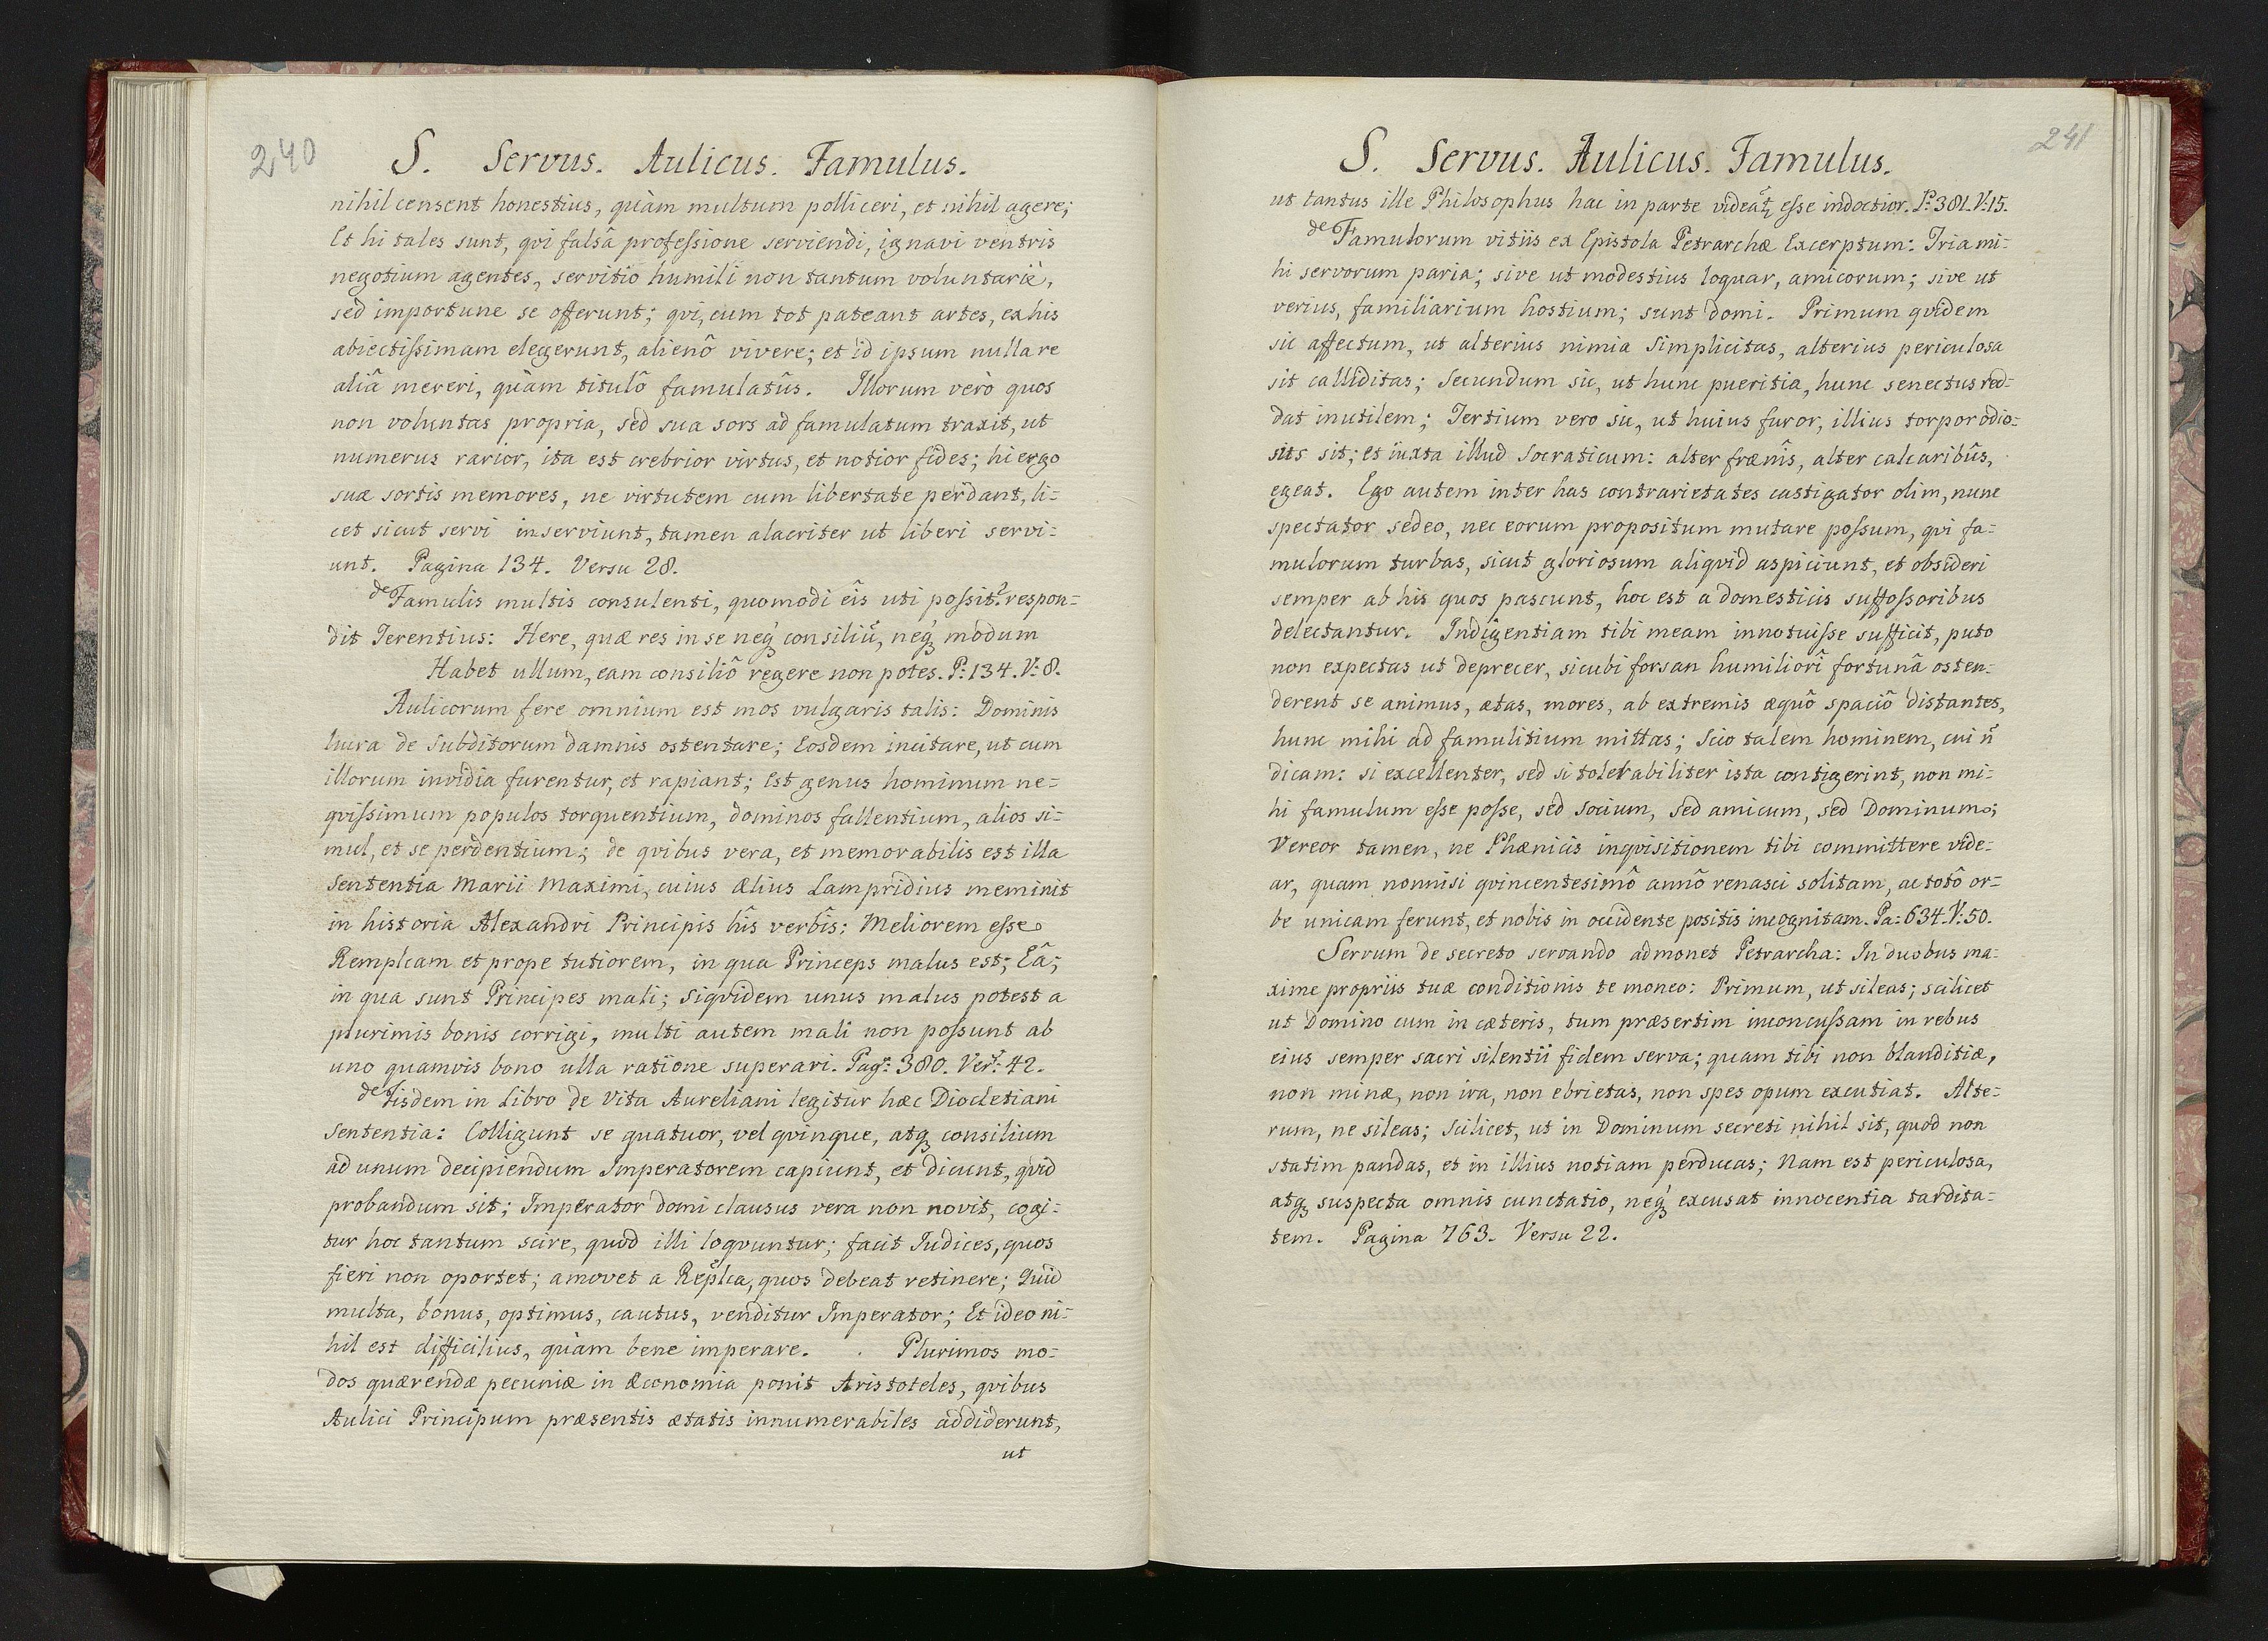 240
S. Servus. Aulicus. Famulus.
nihil censent honestius, quàm multum polliceri, et nihil agere;
Et hi tales sunt, qvi falsâ professione serviendi, ignavi ventris
negotium agentes, servitio humili non tantum voluntariè,
sed importune se offerunt; qvi, cum tot pateant artes, ex his
abiectissimam elegerunt, alienô vivere; et id ipsum nulla re
aliâ mereri, quàm titulô famulatûs. Illorum verò quos
non voluntas propria, sed sua sors ad famulatum traxit, ut
numerus rarior, ita est crebrior virtus, et notior fides; hi ergo
suæ sortis memores, ne virtutem cum libertate perdant, li=
cet sicut servi inserviunt, tamen alacriter ut liberi servi=
unt. Pagina 134. Versu 28.
de Famulis multis consulenti, quomodi eîs uti possit? respon=
dit Terentius: Here, quæ res in se neq́ꝫ consiliū, neq́ꝫ modum
Habet ullum, eam consiliô regere non potes. P: 134. V: 8.
Aulicorum fere omnium est mos vulgaris talis: Dominis
lucra de subditorum damnis ostentare; Eosdem incitare, ut cum
illorum invidia furentur, et rapiant; Est genus hominum ne=
qvissimum populos torquentium, dominos fallentium, alios si=
mul, et se perdentium; de qvibus vera, et memorabilis est illa
sententia Marii Maximi, cuius Ælius Lampridius meminit
in historia Alexandri Principis hîs verbîs: Meliorem esse
Remplcam et prope tutiorem, in qua Princeps malus est; Eâ;
in qua sunt Principes mali; siqvidem unus malus potest a
plurimis bonis corrigi, multi autem mali non possunt ab
uno quamvis bono ulla ratione superari. Pag: 380. Ver: 42.
de Iisdem in Libro de Vita Aureliani legitur hæc Diocletiani
sententia: Colligunt se quatuor, vel qvinque, atqꝫ consilium
ad unum decipiendum Imperatorem capiunt, et dicunt, qvid
probandum sit; Imperator domi clausus vera non novit, cogi=
tur hoc tantum scire, quod illi loqvuntur; facit Iudices, quos
fieri non oportet; amovet a Rep̃lca, quos debeat retinere; Quid
multa, bonus, optimus, cautus, venditur Imperator; Et ideo ni=
hil est difficilius, quàm bene imperare. Plurimos mo=
dos quærendæ pecuniæ in Æconomia ponit Aristoteles, qvibus
Aulici Principum præsentis ætatis innumerabiles addiderunt,
ut
241
S. Servus. Aulicus. Famulus.
ut tantus ille Philosophus hac in parte videat̃ esse indoctior. P: 381. V: 15.
de Famulorum vitiis ex Epistola Petrarchæ Excerptum: Tria mi=
hi servorum paria; sive ut modestius loquar, amicorum; sive ut
verius, familiarium hostium; sunt domi. Primum qvidem
sic affectum, ut alterius nimia simplicitas, alterius periculosa
sit calliditas; Secundum sic, ut hunc pueritia, hunc senectus red=
dat inutilem; Tertium vero sic, ut huius furor, illius torpor odio=
sus sit; et iuxta illud Socraticum: alter frænîs, alter calcaribûs,
egeat. Ego autem inter has contrarietates castigator olim, nunc
spectator sedeo, nec eorum propositum mutare possum, qvi fa=
mulorum turbas, sicut gloriosum aliqvid aspiciunt, et obsideri
semper ab his quos pascunt, hoc est a domesticis suffossoribus
delectantur. Indigentiam tibi meam innotuisse sufficit, puto
non expectas ut deprecer, sicubi forsan humiliorî fortunâ osten=
derent se animus, ætas, mores, ab extremis æquô spaciô distantes,
hunc mihi ad famulitium mittas; scio talem hominem, cui ñ
dicam: si excellenter, sed si tolerabiliter ista contigerint, non mi=
hi famulum esse posse, sed socium, sed amicum, sed Dominum;
Vereor tamen, ne Phænicis inqvisitionem tibi committere vide=
ar, quam nonnisi qvincentesimô annô renasci solitam, ac totô or=
be unicam ferunt, et nobis in occidente positis incognitam. Pa: 634. V: 50.
Servum de secreto servando admonet Petrarcha: In duobus ma=
xime propriis tuæ conditionis te moneo: Primum, ut sileas; scilicet
ut Domino cum in cæteris, tum præsertim inconcussam in rebus
eius semper sacri silentii fidem serva; quam tibi non blanditiæ,
non minæ, non ira, non ebrietas, non spes opum excutiat. Alte=
rum, ne sileas; scilicet, ut in Dominum secreti nihil sit, quod non
statim pandas, et in illius notiam perducas; Nam est periculosa,
atqꝫ suspecta omnis cunctatio, neq́ꝫ excusat innocentia tardita=
tem. Pagina 763. Versu 22.